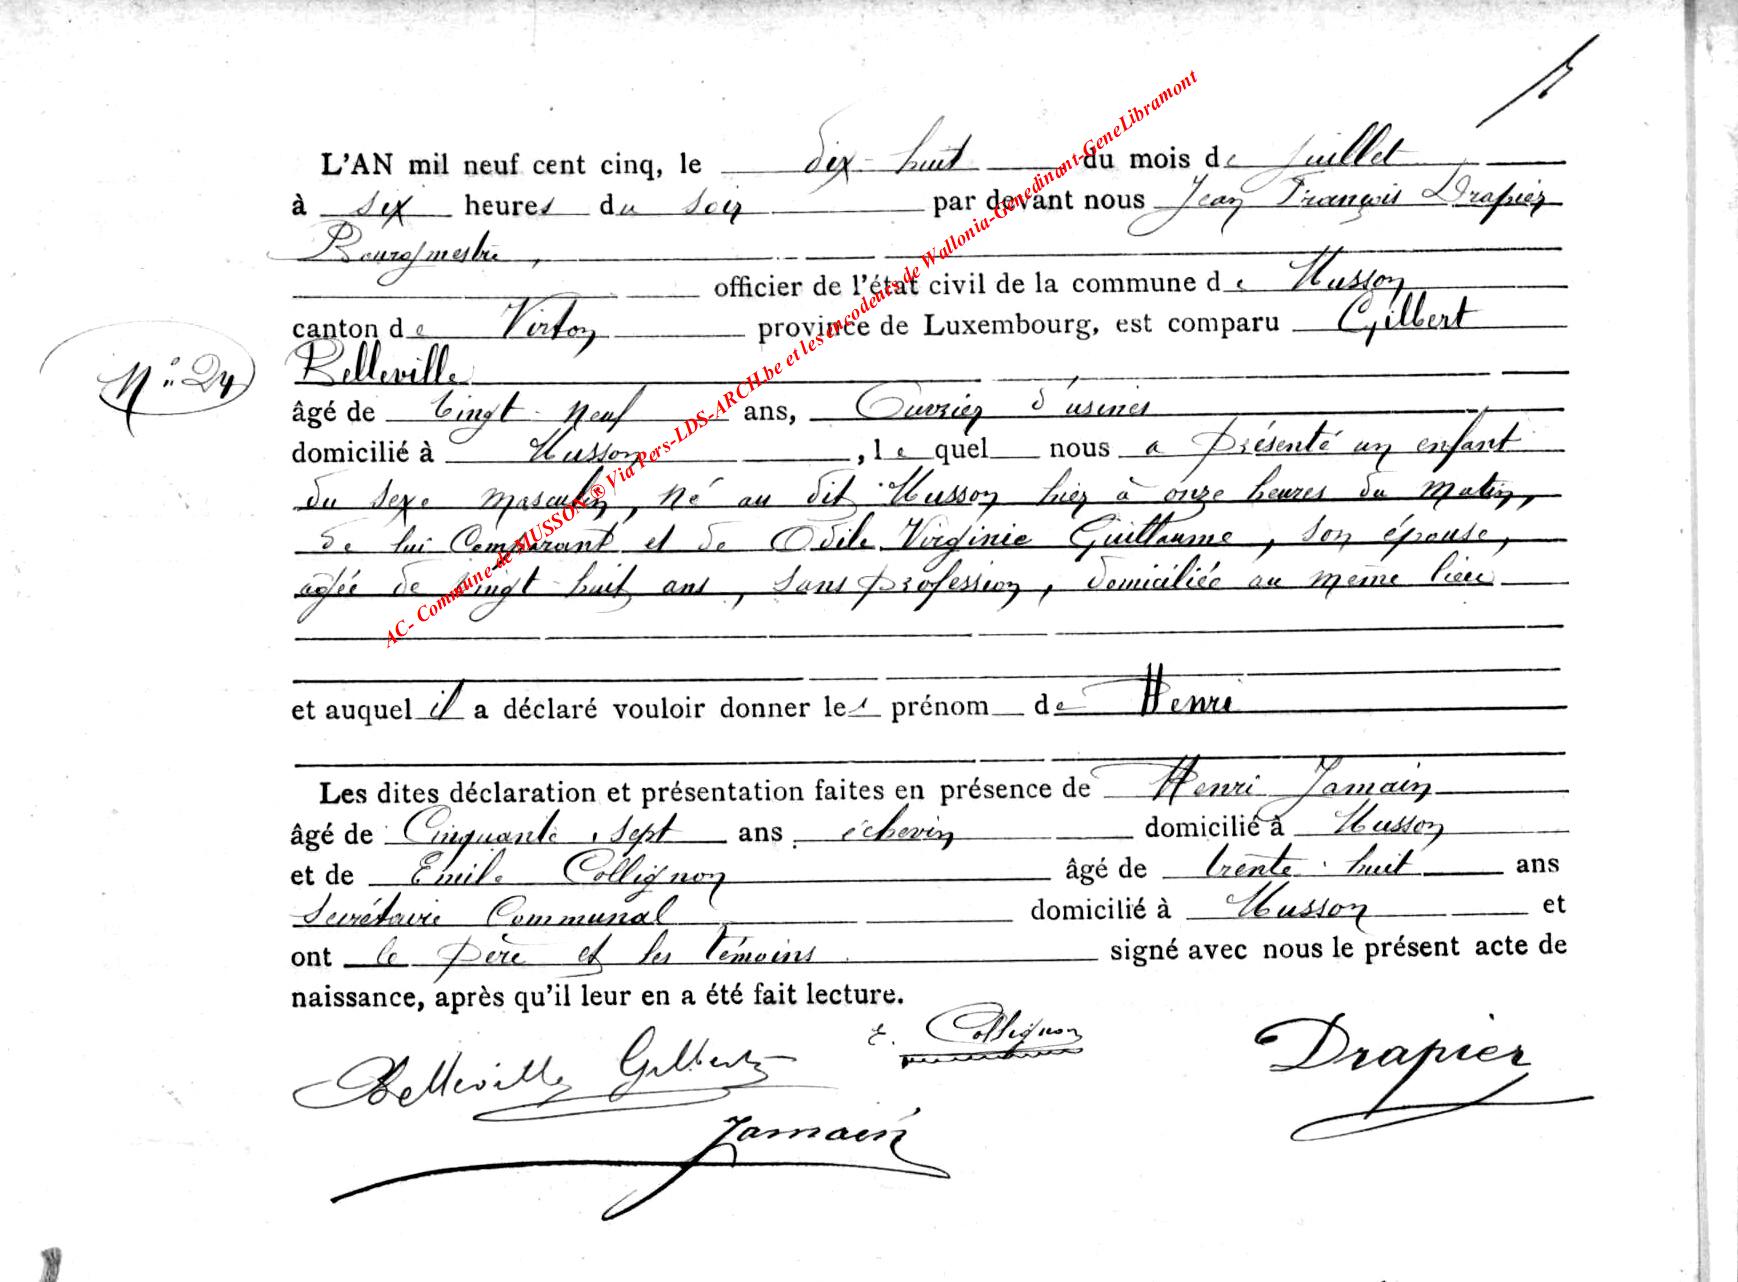 L'AN mil neuf cent cinq, le dix-huit du mois de Juillet
à six heures du soir par devant nous Jean François Drapier
Bourgmestre,
officier de l'état civil de la commune de Musson
canton de Virton province de Luxembourg, est comparu Gilbert
N° 24
Belleville
âgé de vingt-neuf ans, Ouvrier d'usines
domicilié à Musson, lequel nous a présenté un enfant
du sexe masculin, né au dit Musson hier à onze heures du matin,
de lui Comparant et de Odile Virginie Guillaume, son épouse,
agée de vingt-huit ans, sans profession, domiciliée au même lieu
et auquel il a déclaré vouloir donner le prénom de Henri
Les dites déclaration et présentation faites en présence de Henri Jamain
âgé de Cinquante-sept ans échevin domicilié à Musson
et de Emile Collignon âgé de trente-huit ans
Secrétaire Communal domicilié à Musson et
ont le père et les témoins signé avec nous le présent acte de
naissance, après qu'il leur en a été fait lecture.
Belleville Gilbert E. Collignon Drapier
Jamain
AC- Commune de MUSSON ® Via Pers-LDS-ARCH.be et les encodeurs de Wallonia-Genedinant-GeneLibramont